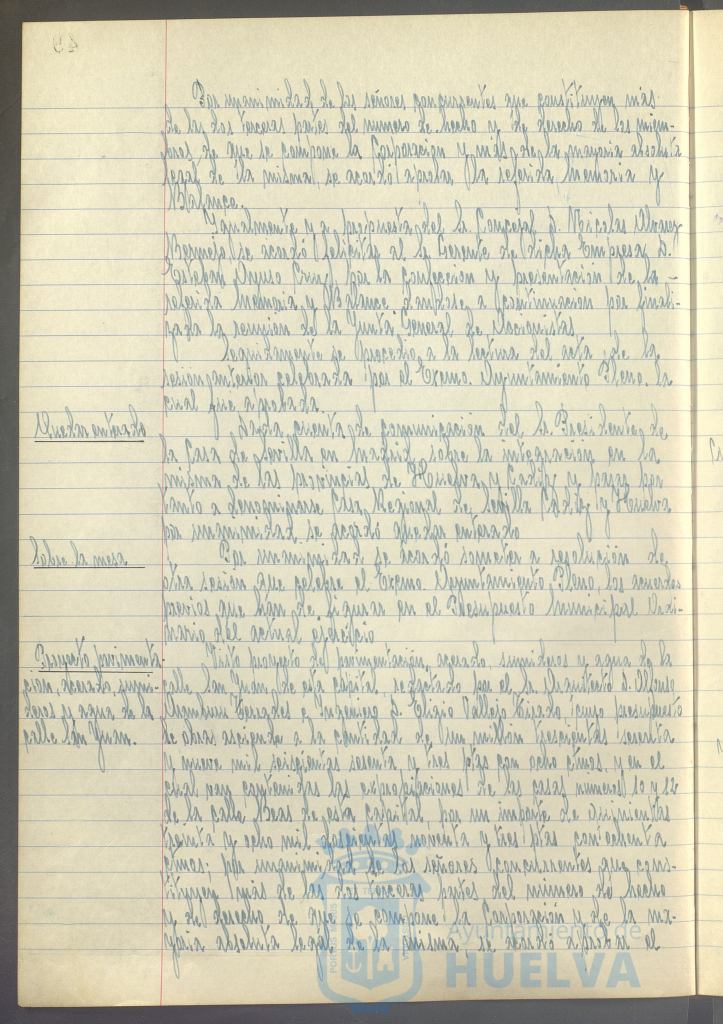 49
Por unanimidad de los señores concurrentes que constituyen más
de las dos terceras partes del numero de hecho y de derecho de los miem-
bros de que se compone la Corporacion y más de la mayoria absoluta
legal de la misma, se acordó aprobar la referida Memoria y
Balance.
Igualmente y a propuesta del Sr. Concejal D. Nicolas Alvarez
Bermejo se acordó felicitar al Sr. Gerente de dicha Empresa D.
Esteban por la confeccion y presentación de la
referida Memoria y Balance a continuacion por finali-
zada la reunion de la Junta General de Accionistas
Seguidamente se procedió a la lectura del acta de la
sesion anterior celebrada por el Excmo. Ayuntamiento Pleno, la
cual fue aprobada.
Quedar enterado
Dada cuenta de comunicación del Sr. Presidente de
la Casa de Sevilla en Madrid, sobre la integración en la
misma de las provincias de Huelva y Cadiz y pasar por
tanto a denominarse Casa Regional de Sevilla Cadiz y Huelva
por unanimidad se acordó quedar enterado
Sobre la mesa
Por unanimidad se acordó someter a resolución de
otra sesión que celebre el Excmo. Ayuntamiento Pleno, los acuerdos
previos que han de figurar en el Presupuesto Municipal Ordi-
nario del actual ejercicio
Proyecto pavimenta-
cion, acerado, sumi-
deros y agua de la
calle San Juan.
Visto proyecto de pavimentación, acerado, sumideros y agua de la
calle San Juan de esta capital, redactado por el Sr. Arquitecto D. Alfonso
e Ingeniero D. Eligio Vallejo cuyo presupuesto
de obras asciende a la cantidad de un millón trescientas sesenta
y nueve mil seiscientas sesenta y tres ptas con ocho ctmos, y en el
cual van contenidas las expropiaciones de las casas numeros 10 y 12
de la calle Beas de esta capital, por un importe de quinientas
treinta y ocho mil doscientas noventa y tres ptas con ochenta
ctmos; por unanimidad de los señores concurrentes que cons-
tituyen más de las dos terceras partes del número de hecho
y de derecho de que se compone la Corporación y de la ma-
yoria absoluta legal de la misma, se acordó aprobar el
Ayuntamiento de
HUELVA